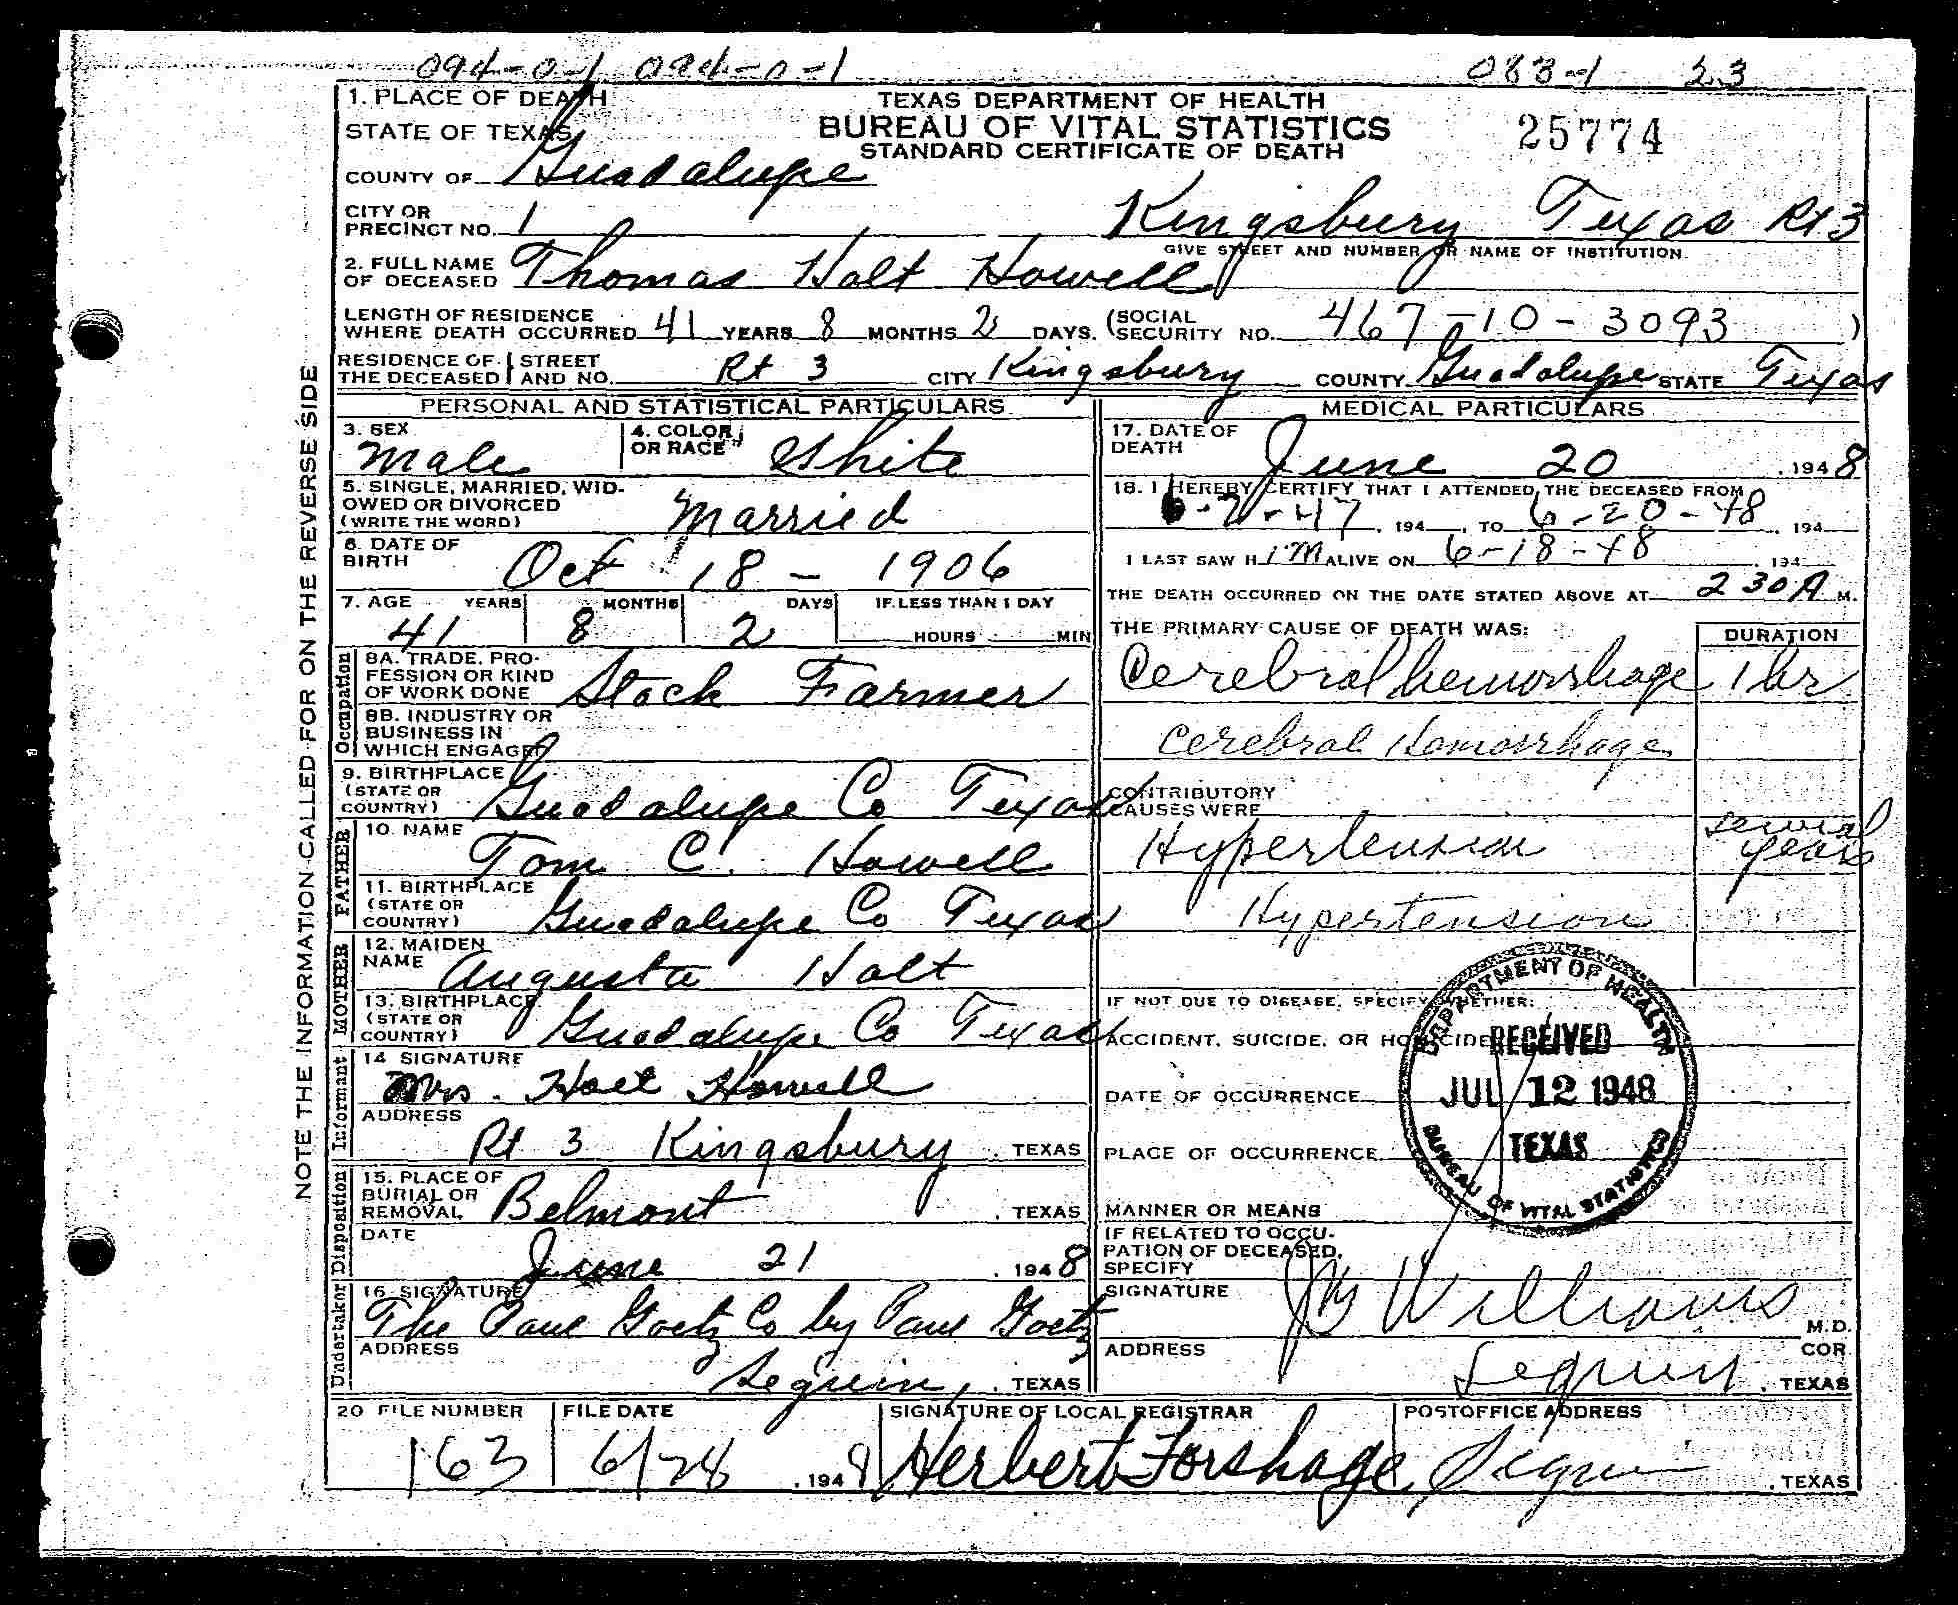 094-0-1 094-0-1 083-1 23
1. PLACE OF DEATH
STATE OF TEXAS
TEXAS DEPARTMENT OF HEALTH
BUREAU OF VITAL STATISTICS
STANDARD CERTIFICATE OF DEATH
25774
COUNTY OF Guadalupe
CITY OR
PRECINCT NO. 1 Kingsbury Texas Rt 3
GIVE STREET AND NUMBER OR NAME OF INSTITUTION
2. FULL NAME
OF DECEASED Thomas Holt Howell
LENGTH OF RESIDENCE
WHERE DEATH OCCURRED 41 YEARS 8 MONTHS 2 DAYS. (SOCIAL SECURITY NO. 467-10-3093 )
RESIDENCE OF THE DECEASED STREET AND NO. Rt 3 CITY Kingsbury COUNTY Guadalupe STATE Texas
PERSONAL AND STATISTICAL PARTICULARS
3. SEX
Male
4. COLOR OR RACE White
5. SINGLE, MARRIED, WID-
OWED OR DIVORCED
(WRITE THE WORD) Married
6. DATE OF
BIRTH Oct 18 - 1906
7. AGE YEARS MONTHS DAYS IF LESS THAN 1 DAY
41 8 2 HOURS MIN
Occupation
8A. TRADE, PRO-
FESSION OR KIND
OF WORK DONE Stock Farmer
8B. INDUSTRY OR
BUSINESS IN
WHICH ENGAGED
9. BIRTHPLACE
(STATE OR
COUNTRY) Guadalupe Co Texas
FATHER
10. NAME
Tom C. Howell
11. BIRTHPLACE
(STATE OR
COUNTRY) Guadalupe Co Texas
MOTHER
12. MAIDEN
NAME Augusta Holt
13. BIRTHPLACE
(STATE OR
COUNTRY) Guadalupe Co Texas
Informant
14 SIGNATURE
Mrs. Holt Howell
ADDRESS
Rt 3 Kingsbury, TEXAS
Disposition
15. PLACE OF
BURIAL OR
REMOVAL Belmont, TEXAS
DATE
June 21, 1948
Undertaker
16 SIGNATURE
The Paul Goetz Co by Paul Goetz
ADDRESS
Seguin, TEXAS
MEDICAL PARTICULARS
17. DATE OF
DEATH June 20, 1948
18. I HEREBY CERTIFY THAT I ATTENDED THE DECEASED FROM
6-7-47, 194 , TO 6-20-48, 194
I LAST SAW H im ALIVE ON 6-18-48, 194
THE DEATH OCCURRED ON THE DATE STATED ABOVE AT 2 30 A M.
THE PRIMARY CAUSE OF DEATH WAS: DURATION
Cerebral hemorrhage 1 hr
Cerebral Hemorrhage
CONTRIBUTORY
CAUSES WERE
Hypertension several years
Hypertension
IF NOT DUE TO DISEASE, SPECIFY WHETHER:
ACCIDENT, SUICIDE, OR HOMICIDE
DATE OF OCCURRENCE
PLACE OF OCCURRENCE
MANNER OR MEANS
IF RELATED TO OCCU-
PATION OF DECEASED,
SPECIFY
DEPARTMENT OF HEALTH
RECEIVED
JUL 12 1948
TEXAS
BUREAU OF VITAL STATISTICS
SIGNATURE J M Williams M.D.
COR
ADDRESS Seguin, TEXAS
20 FILE NUMBER FILE DATE SIGNATURE OF LOCAL REGISTRAR POSTOFFICE ADDRESS
163 6/28, 1948 Herbert Forshage, Seguin, TEXAS
NOTE THE INFORMATION CALLED FOR ON THE REVERSE SIDE